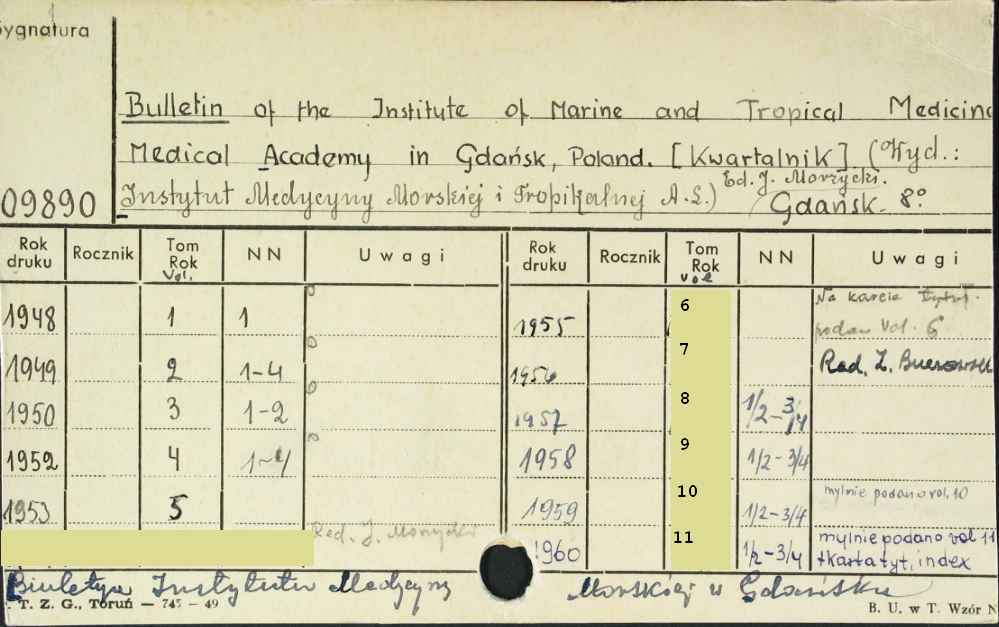 Sygnatura
Bulletin of the Institute of Marine and Tropical Medicine
Medical Academy in Gdańsk, Poland. [Kwartalnik]. (Wyd.:
Ed. J. Morzycki.
09890 Instytut Medycyny Morskiej i Tropikalnej A.L.) Gdańsk. 8°
Rok druku Rocznik Tom Rok Vol. NN Uwagi Rok druku Rocznik Tom Rok vol NN Uwagi
1948 1 1 1955 6 Na karcie tytuł. podan vol. 6
1949 2 1-4 1956 7 Red. Z.
1950 3 1-2 1957 8 1/2-3/4
1952 4 1-4 1958 9 1/2-3/4
1953 5 1959 10 1/2-3/4 mylnie podano vol. 10
Red. J. Morzycki 1960 11 1/2-3/4 mylnie podano vol 11
+karta tyt, index
Biuletyn Instytutu Medycyny Morskiej w Gdańsku
. T. Z. G., Toruń — 745 — 49
B. U. w T. Wzór N